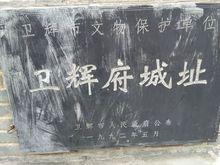 卫辉市文物保护单位
卫辉府城址
卫辉市人民政府公布
一九九二年五月